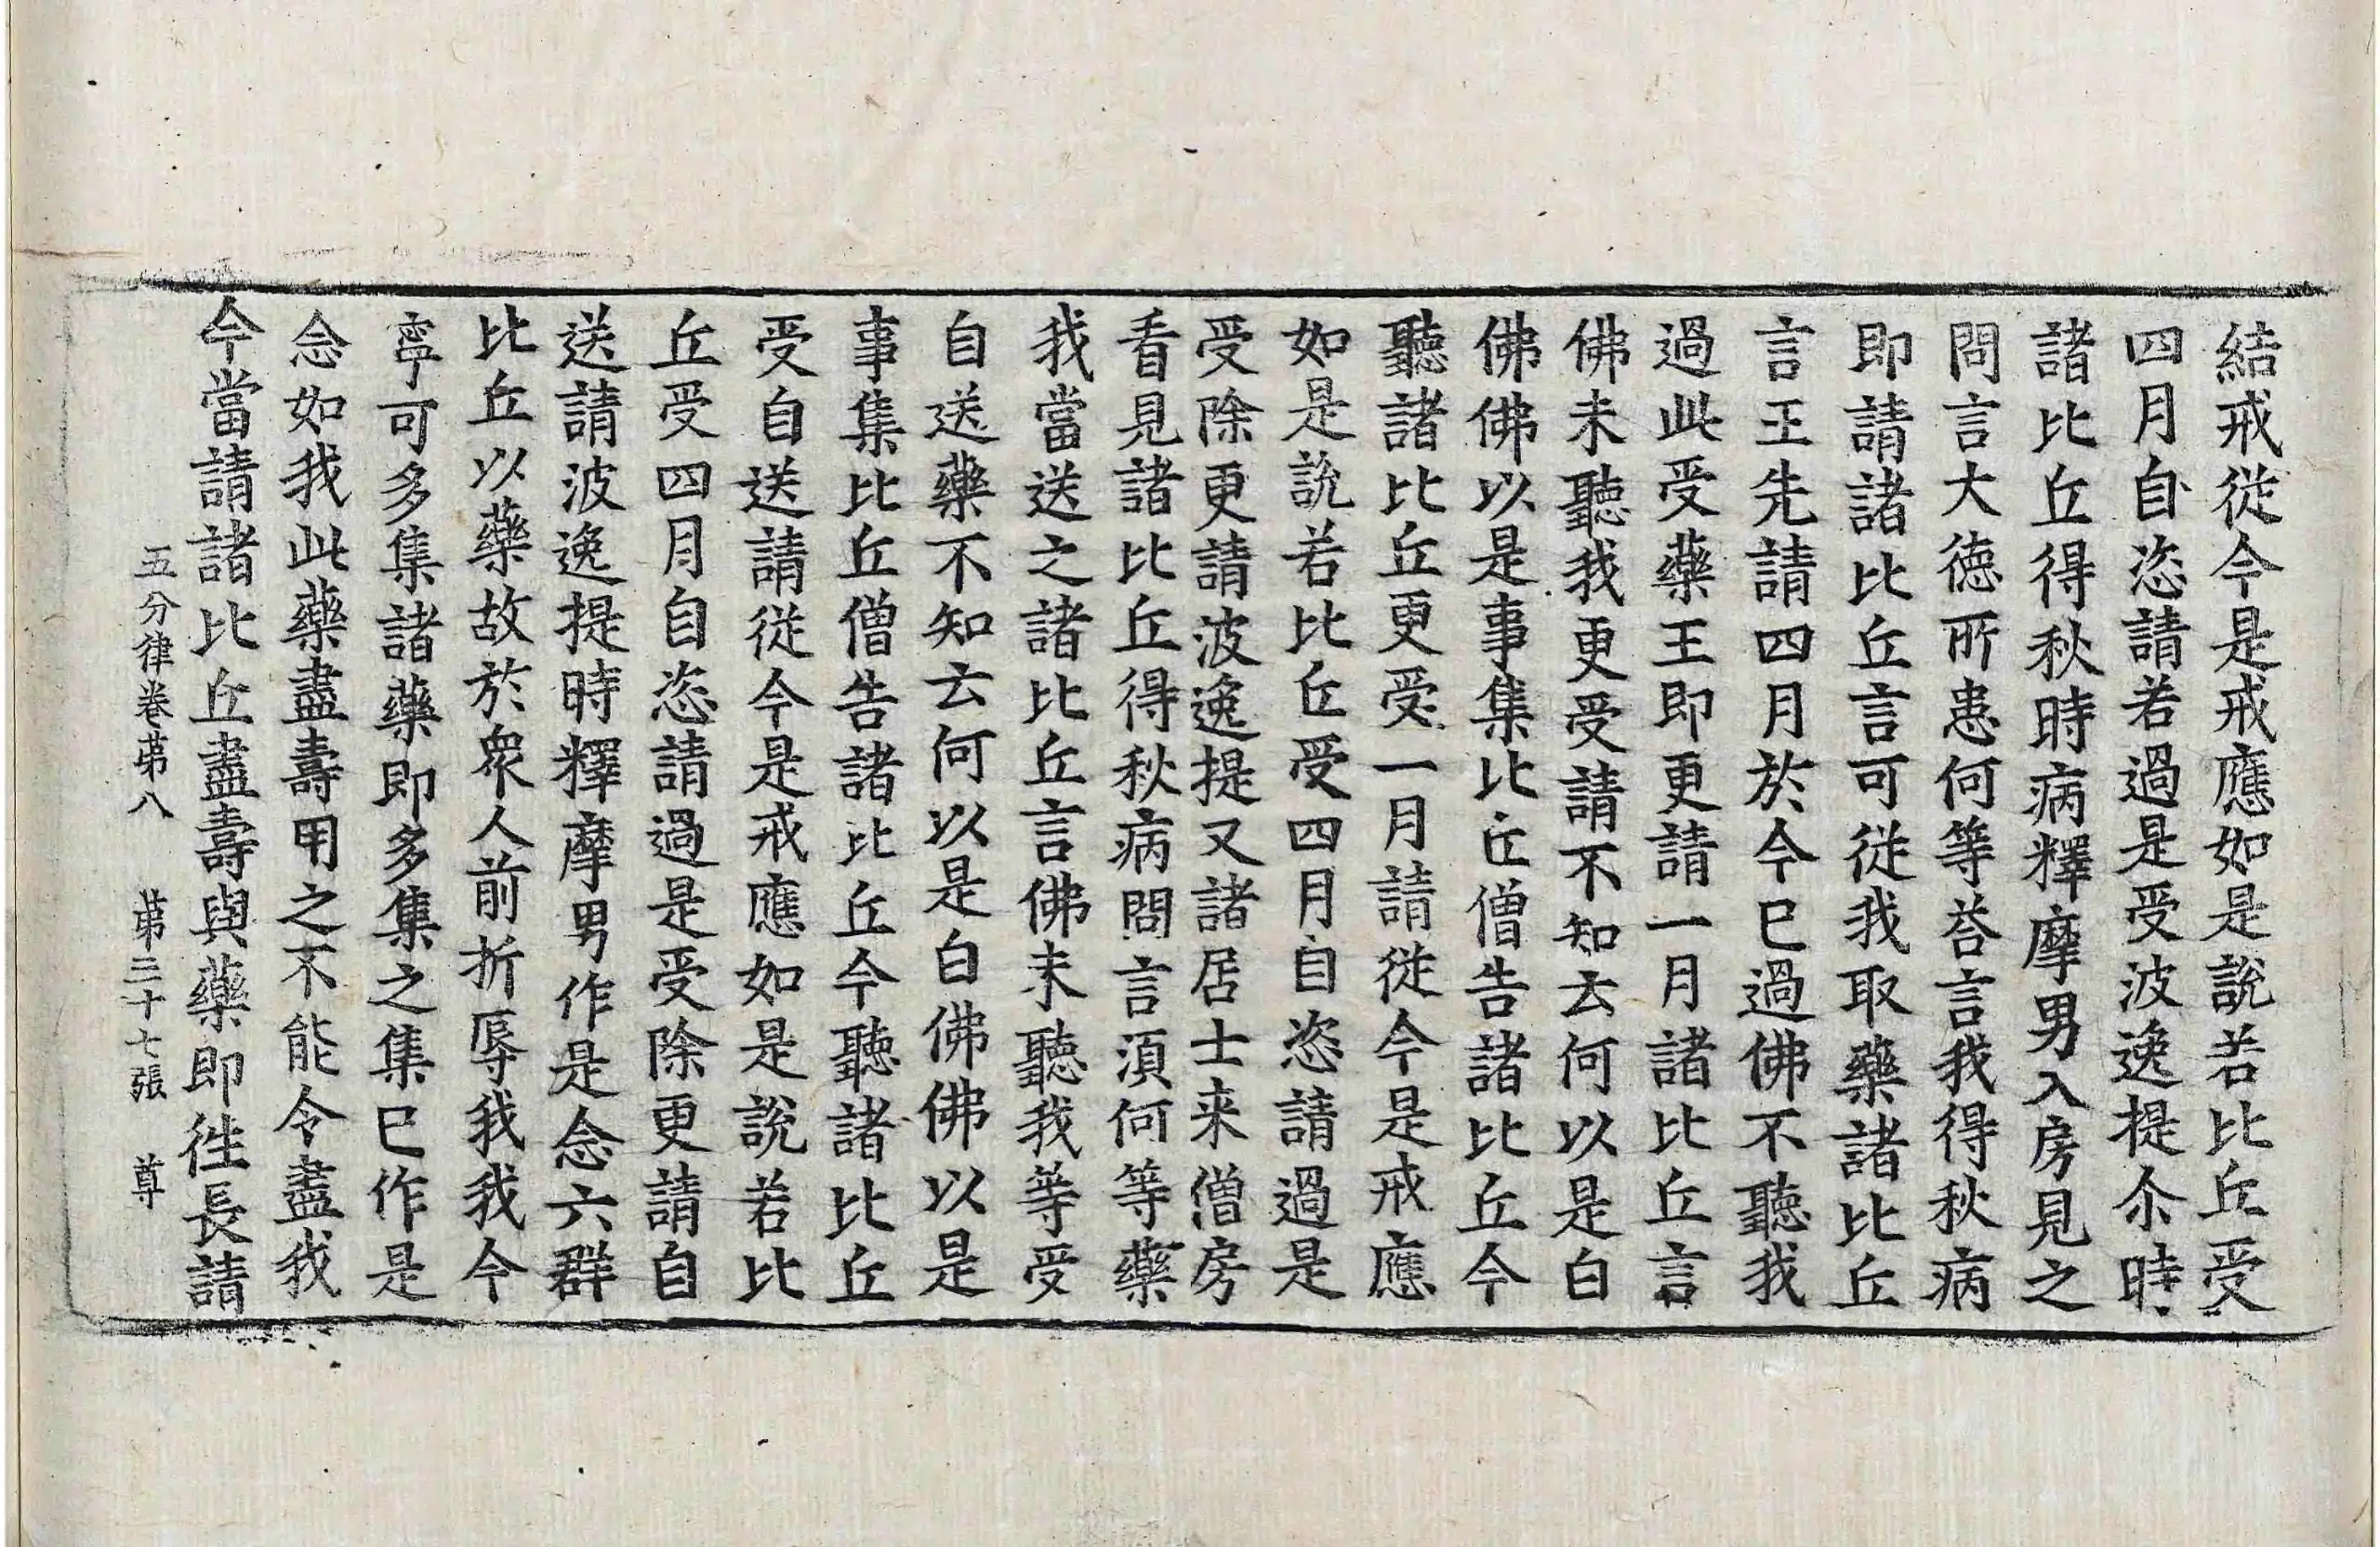 結戒從今是戒應如是說若比丘受
四月自恣請若過是受波逸提尒時
諸比丘得秋時病釋摩男入房見之
問言大德所患何等荅言我得秋病
即請諸比丘言可從我取藥諸比丘
言王先請四月於今已過佛不聽我
過此受藥王即更請一月諸比丘言
佛未聽我更受請不知云何以是白
佛佛以是事集比丘僧告諸比丘今
聽諸比丘更受一月請從今是戒應
如是說若比丘受四月自恣請過是
受除更請波逸提又諸居士来僧房
看見諸比丘得秋病問言須何等藥
我當送之諸比丘言佛未聽我等受
自送藥不知云何以是白佛佛以是
事集比丘僧告諸比丘今聽諸比丘
受自送請從今是戒應如是說若比
丘受四月自恣請過是受除更請自
送請波逸提時釋摩男作是念六群
比丘以藥故於衆人前折辱我我今
寧可多集諸藥即多集之集已作是
念如我此藥盡壽用之不能令盡我
今當請諸比丘盡壽與藥即徃長請
五分律卷苐八 苐三十七張 尊